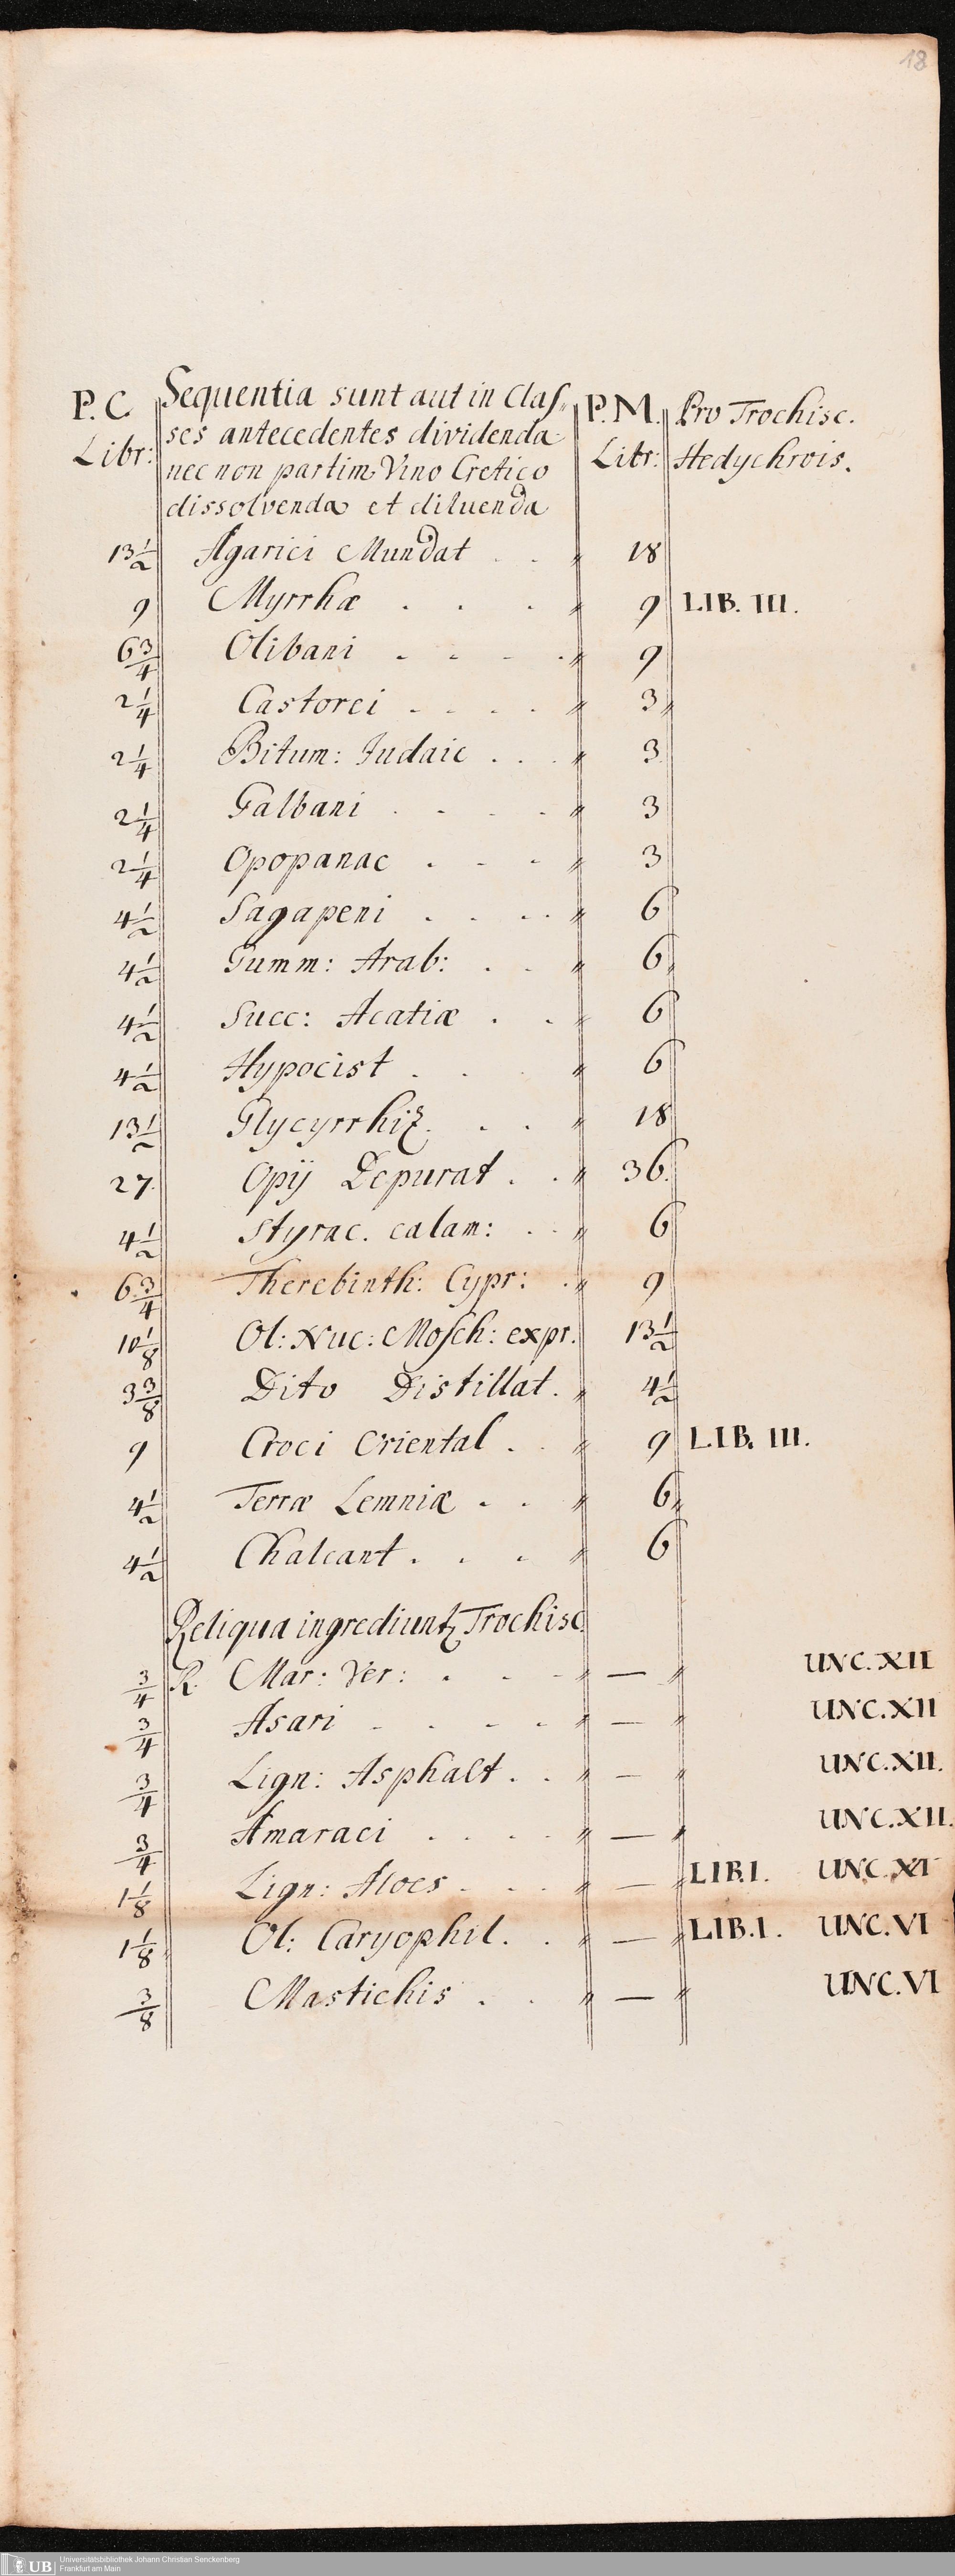 18
P. C. Sequentia sunt aut in Clas- P. M. Pro Trochisc.
Libr: ses antecedentes dividenda Libr: Hedychrois.
nec non partim Vino Cretico
dissolvenda et diluenda
13 1/2 Agarici Mundat . . 18
9 Myrrhæ . . . 9 LIB. III.
6 3/4 Olibani . . . . 9
2 1/4 Castorei . . . . 3
2 1/4 Bitum: Judaic . . . 3
2 1/4 Galbani . . . . 3
2 1/4 Opopanac . . . 3
4 1/2 Sagapeni . . . . 6
4 1/2 Gumm: Arab: . . 6
4 1/2 Succ: Acatiæ . . 6
4 1/2 Hypocist . . . 6
13 1/2 Glycyrrhiz. . . 18
27. Opij Depurat . . 36.
4 1/2 Styrac. calam: . . 6
6 3/4 Therebinth: Cypr: . 9
10 1/8 Ol: Nuc: Mosch: expr. 13 1/2
3 3/8 Dito Distillat. 4 1/2
9 Croci Oriental . . 9 LIB. III.
4 1/2 Terræ Lemniæ . . 6
4 1/2 Chalcant . . . 6
Reliqua ingrediuntz Trochisc
3/4 R. Mar: Ver: . . . — UNC. XII
3/4 Asari . . . . — UNC. XII
3/4 Lign: Asphalt . . — UNC. XII.
3/4 Amaraci . . . . — UNC. XII.
1 1/8 Lign: Aloes . . . — LIB. I. UNC. XI
1 1/8 Ol: Caryophil. . — LIB. I. UNC. VI
3/8 Mastichis . . — UNC. VI
UB Universitätsbibliothek Johann Christian Senckenberg
Frankfurt am Main